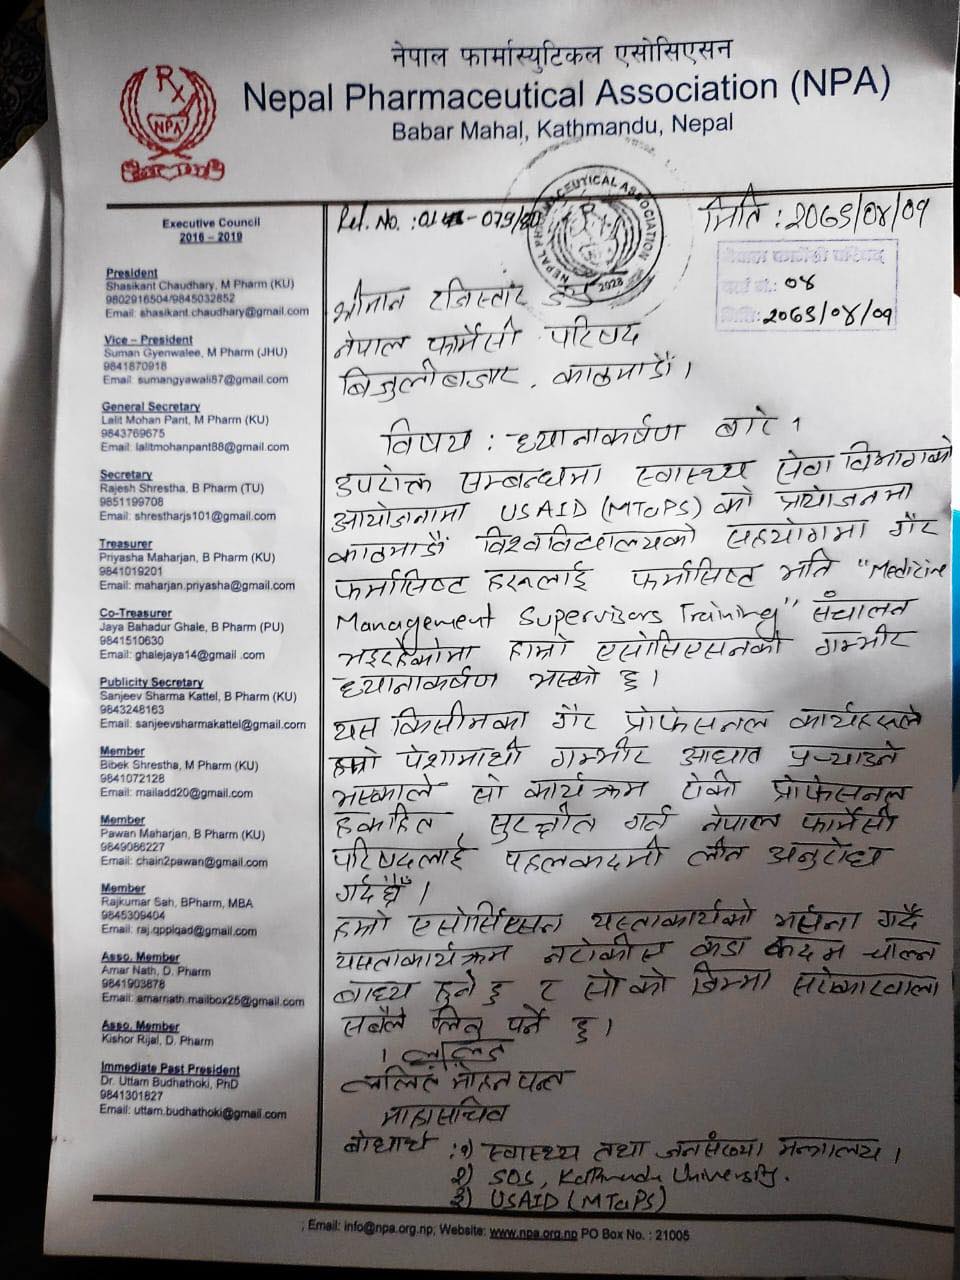 नेपाल फार्मास्युटिकल एसोसिएसन
Nepal Pharmaceutical Association (NPA)
Babar Mahal, Kathmandu, Nepal
Rx
NPA
Executive Council
2016 – 2019
President
Shasikant Chaudhary, M Pharm (KU)
9802916504/9845032852
Email: shasikant.chaudhary@gmail.com
Vice – President
Suman Gyenwalee, M Pharm (JHU)
9841870918
Email: sumangyawali87@gmail.com
General Secretary
Lalit Mohan Pant, M Pharm (KU)
9843769675
Email: lalitmohanpant88@gmail.com
Secretary
Rajesh Shrestha, B Pharm (TU)
9851199708
Email: shrestharjs101@gmail.com
Treasurer
Priyasha Maharjan, B Pharm (KU)
9841019201
Email: maharjan.priyasha@gmail.com
Co-Treasurer
Jaya Bahadur Ghale, B Pharm (PU)
9841510630
Email: ghalejaya14@gmail .com
Publicity Secretary
Sanjeev Sharma Kattel, B Pharm (KU)
9843248163
Email: sanjeevsharmakattel@gmail.com
Member
Bibek Shrestha, M Pharm (KU)
9841072128
Email: mailadd20@gmail.com
Member
Pawan Maharjan, B Pharm (KU)
9849086227
Email: chain2pawan@gmail.com
Member
Rajkumar Sah, BPharm, MBA
9845309404
Email: raj.qpplqad@gmail.com
Asso. Member
Amar Nath, D. Pharm
9841903878
Email: amarnath.mailbox25@gmail.com
Asso. Member
Kishor Rijal, D. Pharm
Immediate Past President
Dr. Uttam Budhathoki, PhD
9841301827
Email: uttam.budhathoki@gmail.com
Ref. No. :
मिति : २०७९/०४/०१
NEPAL PHARMACEUTICAL ASSOCIATION
2028
नेपाल फार्मेसी परिषद
०४
२०७९/०४/०१
श्रीमान रजिस्टार
नेपाल फार्मेसी परिषद
बिजुलीबजार, काठमाडौं ।
विषय : ध्यानाकर्षण बारे ।
उपरोक्त सम्बन्धमा स्वास्थ्य सेवा विभागको
आयोजनामा USAID (MTaPS) को प्रायोजनमा
काठमाडौं विश्वविद्यालयको सहयोगमा गैर
फर्मासिष्ट हरूलाई फर्मासिष्ट भनि "Medicine
Management Supervisors Training" संचालन
भइरहेकोमा हाम्रो एसोसिएसनको गम्भीर
ध्यानाकर्षण भएको छ ।
यस किसीमका गैर प्रोफेसनल कार्यहरूले
हाम्रो पेशामाथी गम्भीर आघात पुर्‍याउने
भएकाले सो कार्यक्रम रोकी प्रोफेसनल
हकहित सुरक्षीत गर्न नेपाल फार्मेसी
परिषदलाई पहलकदमी लीन अनुरोध
गर्दछौं ।
हाम्रो एसोसिएसन यस्ताकार्यको भर्सना गर्दै
यस्ताकार्यक्रम नरोकीए कडा कदम चाल्न
बाध्य हुने छ र सोको जिम्मा सरोकारवाला
सबैले लिनु पर्ने छ ।
ललित मोहन पन्त
माहासचिव
बोधार्थ :१) स्वास्थ्य तथा जनसंख्या मन्त्रालय ।
२) SOS, Kathmandu University.
३) USAID (MTaPS)
; Email: info@npa.org.np; Website: www.npa.org.np PO Box No. : 21005